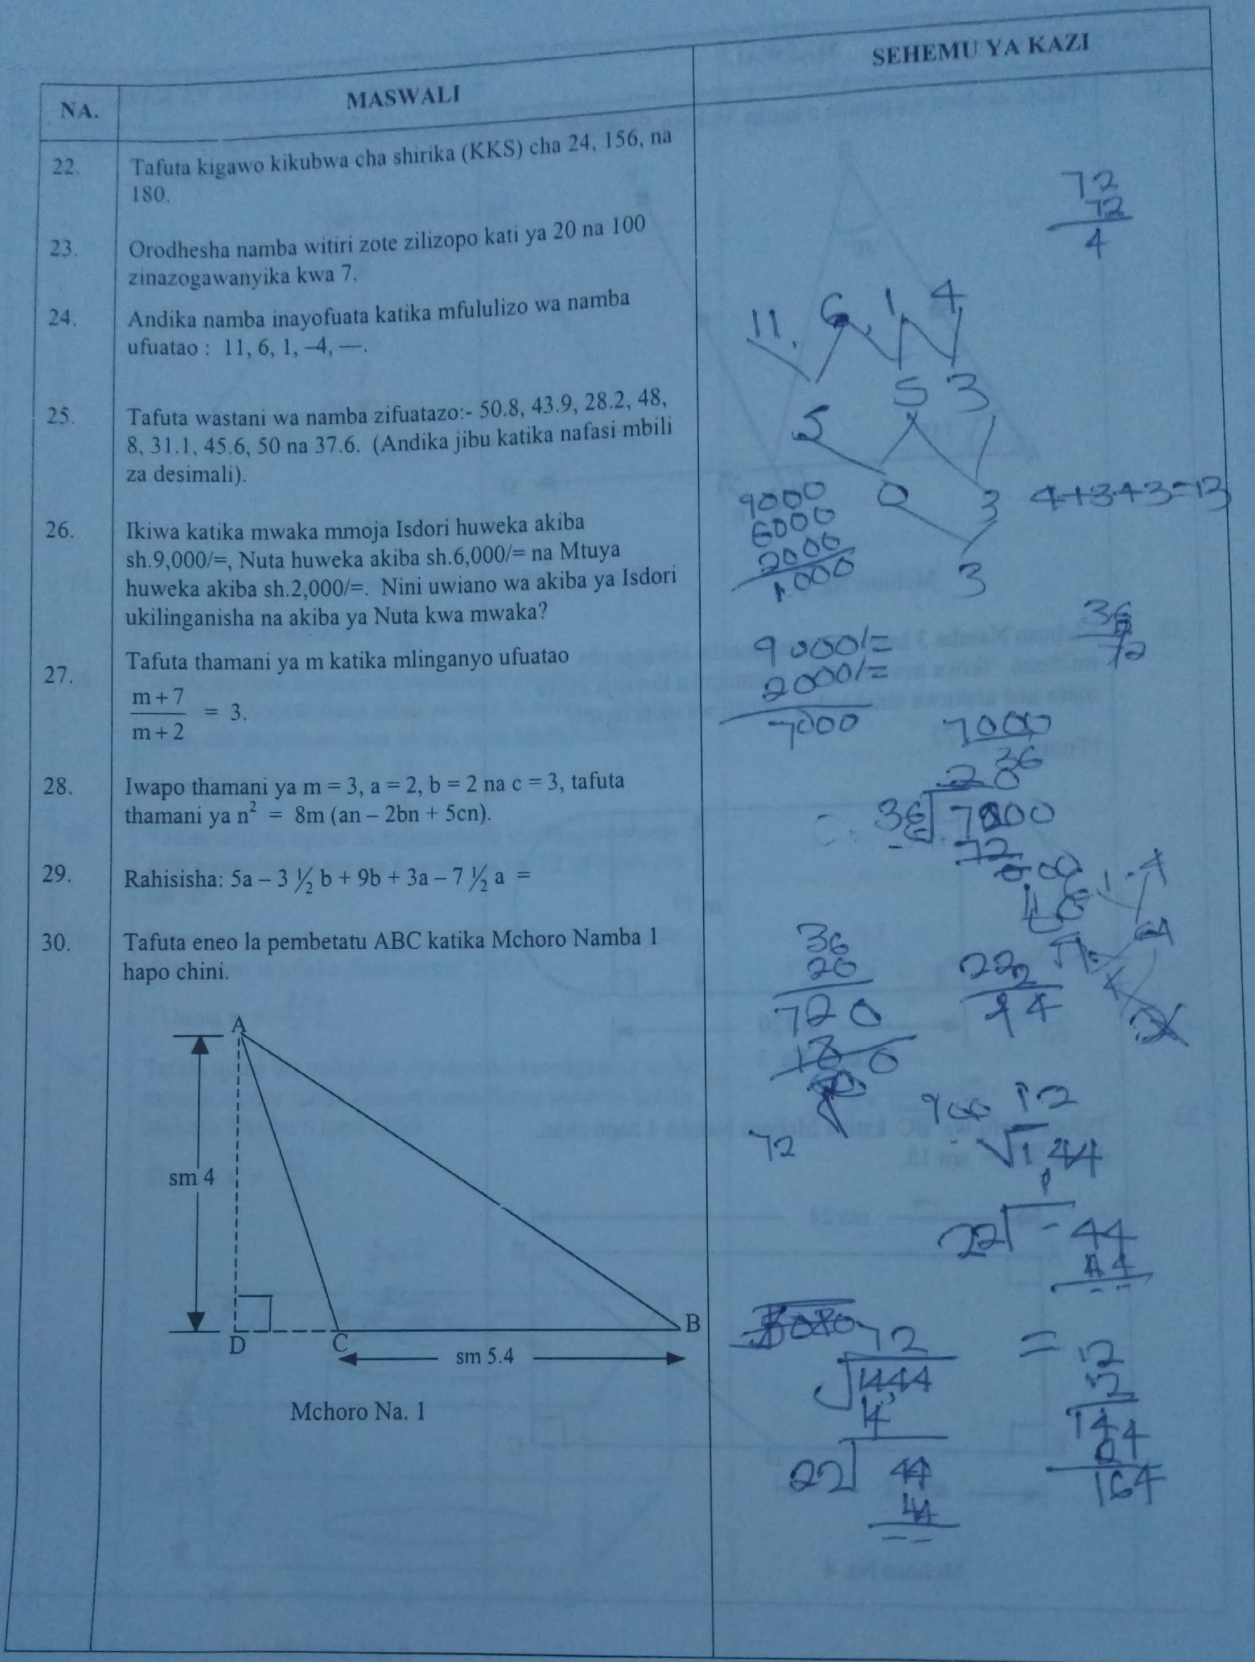 NA.
MASWALI
SEHEMU YA KAZI
22. Tafuta kigawo kikubwa cha shirika (KKS) cha 24, 156, na
180.
23. Orodhesha namba witiri zote zilizopo kati ya 20 na 100
zinazogawanyika kwa 7.
24. Andika namba inayofuata katika mfululizo wa namba
ufuatao : 11, 6, 1, –4, —.
25. Tafuta wastani wa namba zifuatazo:- 50.8, 43.9, 28.2, 48,
8, 31.1, 45.6, 50 na 37.6. (Andika jibu katika nafasi mbili
za desimali).
26. Ikiwa katika mwaka mmoja Isdori huweka akiba
sh.9,000/=, Nuta huweka akiba sh.6,000/= na Mtuya
huweka akiba sh.2,000/=. Nini uwiano wa akiba ya Isdori
ukilinganisha na akiba ya Nuta kwa mwaka?
27. Tafuta thamani ya m katika mlinganyo ufuatao
m + 7
m + 2 = 3.
28. Iwapo thamani ya m = 3, a = 2, b = 2 na c = 3, tafuta
thamani ya n² = 8m (an – 2bn + 5cn).
29. Rahisisha: 5a – 3 ½ b + 9b + 3a – 7 ½ a =
30. Tafuta eneo la pembetatu ABC katika Mchoro Namba 1
hapo chini.
A
sm 4
D
C
B
sm 5.4
Mchoro Na. 1
72
72
4
11, 6, 1 4
5 3
5
0 3 4+3+3=13
3
9000
6000
2000
1000
9000/=
2000/=
7000
36
72
7000
36
20
36 7000
72
36
20
720
222
94
72
900 12
√1,44
22 44
44
72
1444
22 44
44
= 12
12
144
24
164